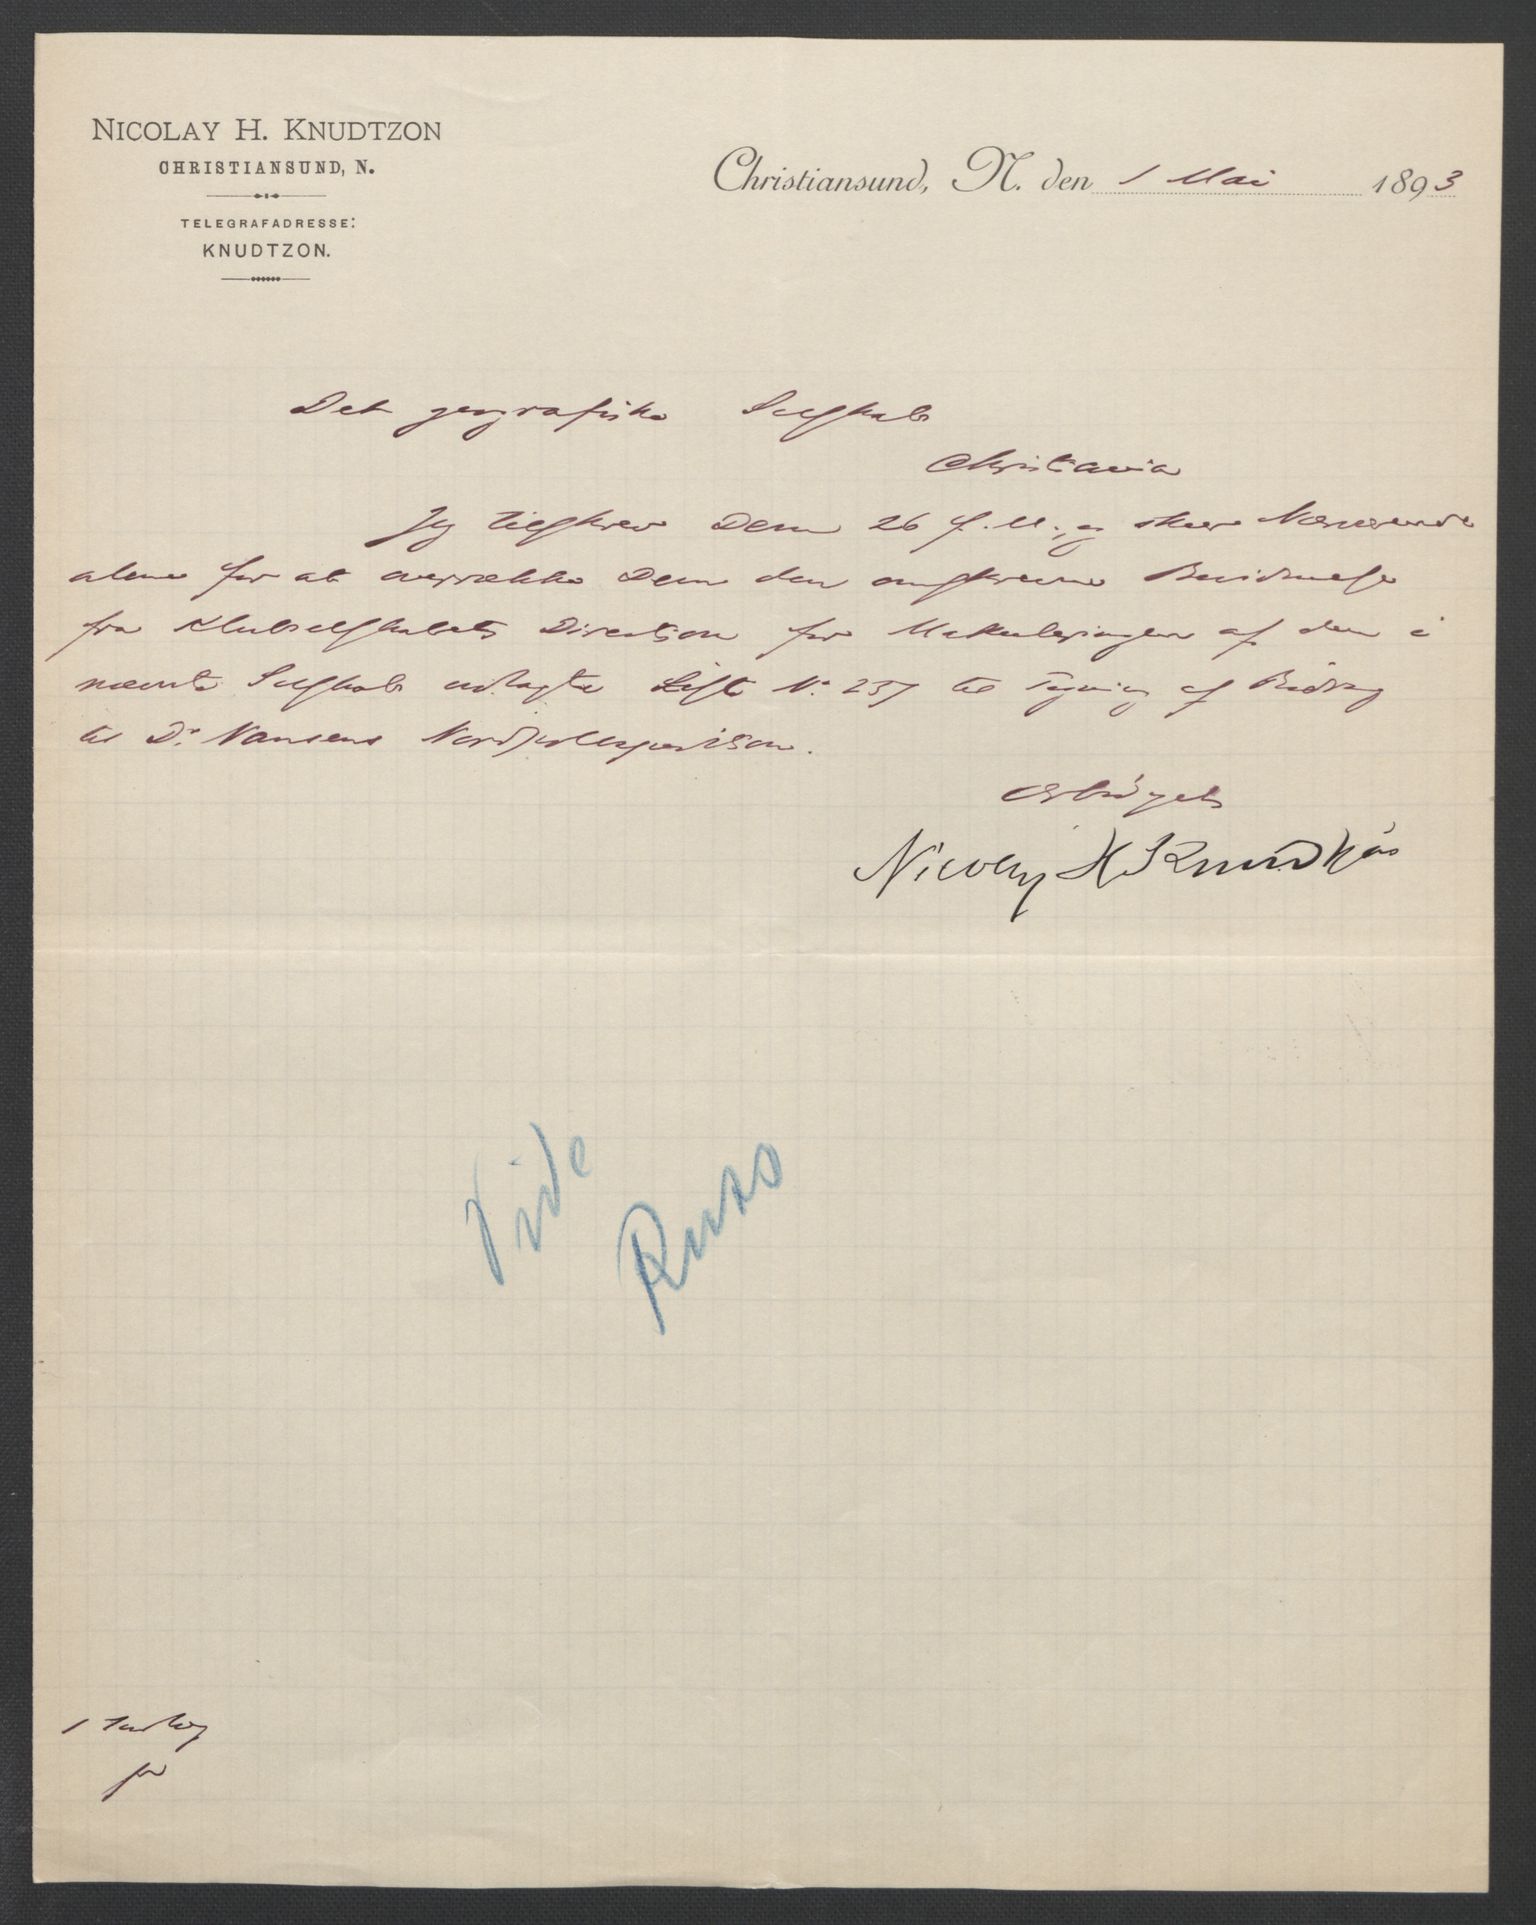 NICOLAY H. KNUDTZON
CHRISTIANSUND, N.
TELEGRAFADRESSE:
KNUDTZON.
Christiansund, N. den 1 Mai 1893
Det geografiske Selskab
Christiania
Jeg tilskrev Dem 26 f. M.; og skeer Nærværende
alene for at overrække Dem den omskrevne Bevidnelse
fra Klubselskabets Direction for Makuleringen af den i
nævnte Selskab udlagte Liste No 257 til Tegning af Bidrag
til Dr Nansens Nordpolexpedition.
Erbødigst
Nicolay H Knudtzon
Vide
1 Indlæg